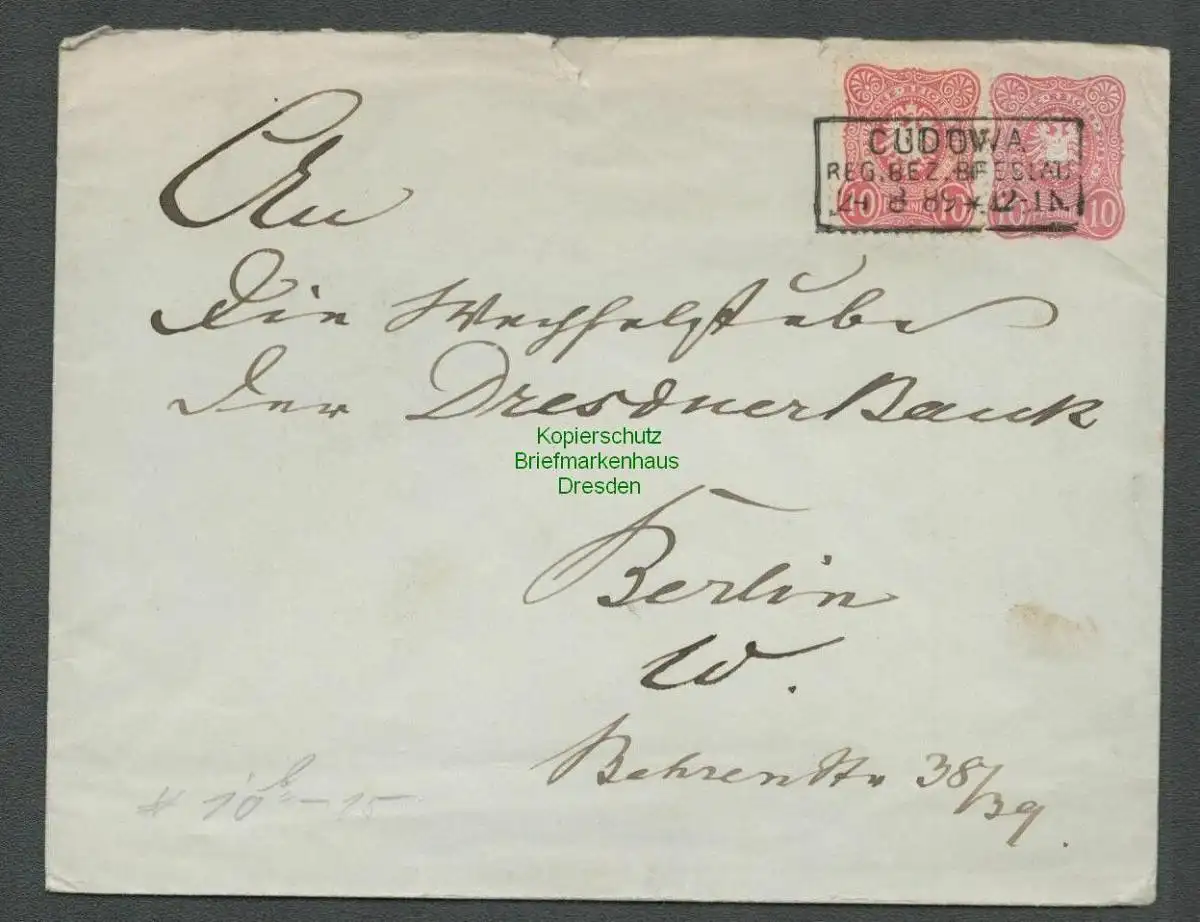 CUDOWA
REG.BEZ.BRESLAU
24 8 89 * 12-1N
10 10
10 PFENNIG 10
An
die Wechselstube
der Dresdner Bank
Kopierschutz
Briefmarkenhaus
Dresden
Berlin
W.
Behrenstr 38/39.